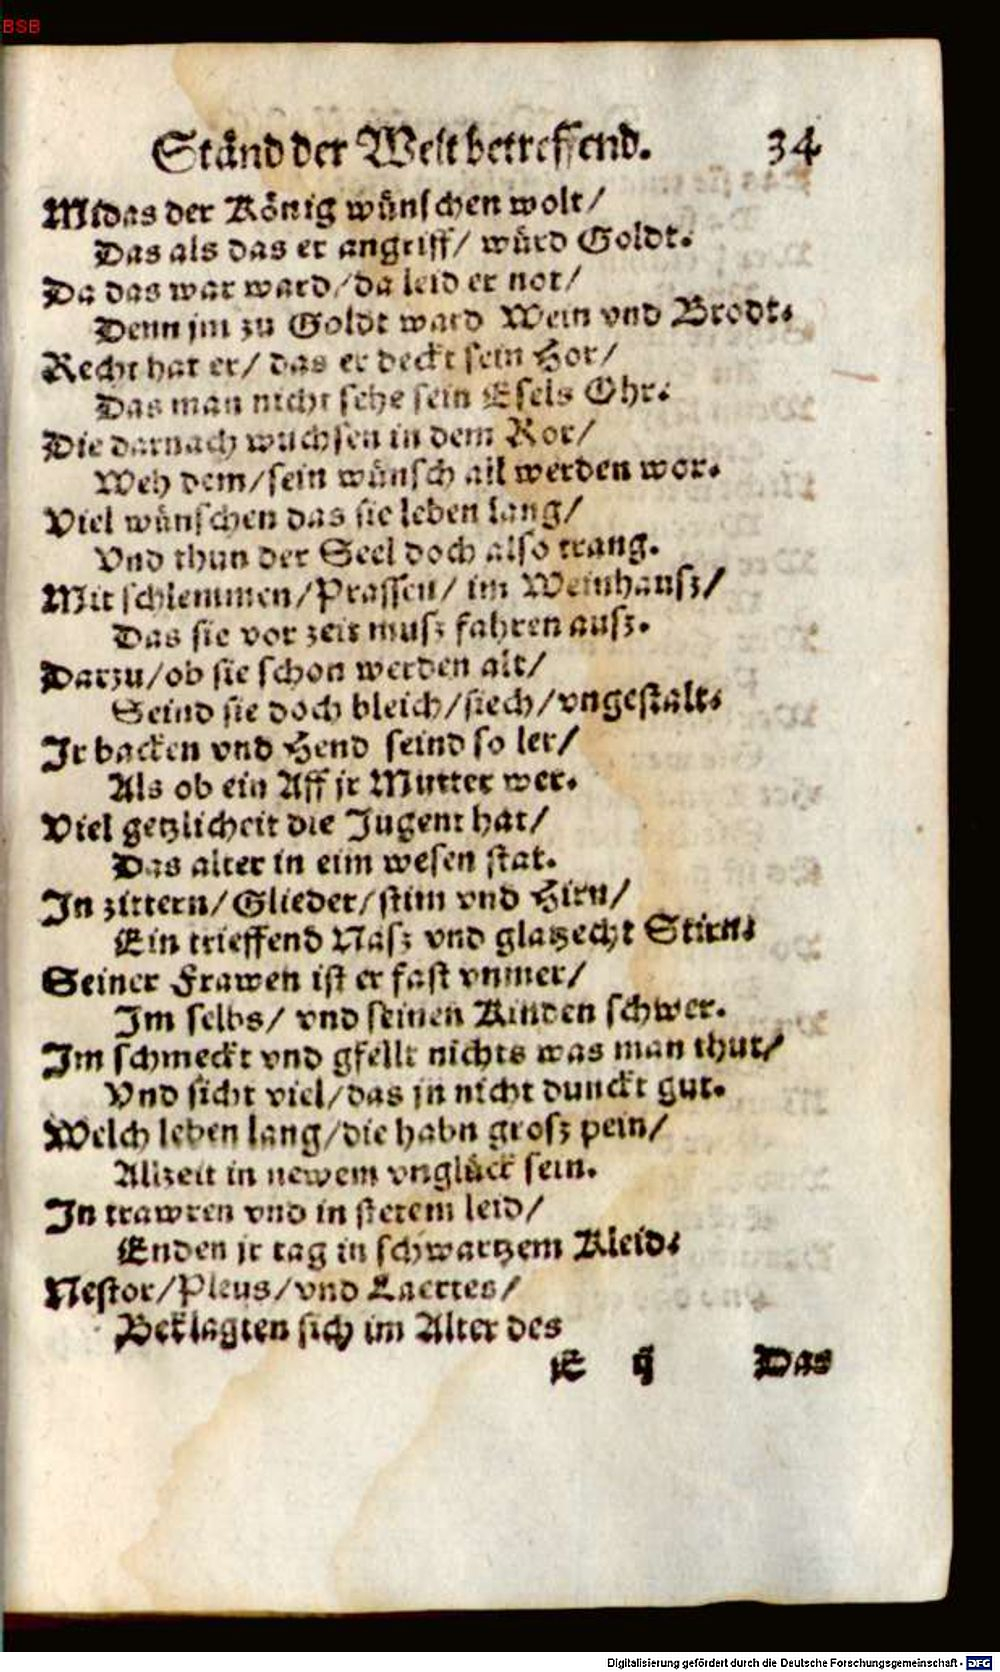 BSB
Ständ der Welt betreffend. 34
Midas der König wünschen wolt/
Das als das er angriff/ würd Goldt.
Da das war ward/da leid er not/
Denn jm zu Goldt ward Wein vnd Brodt.
Recht hat er/ das er deckt sein Hor/
Das man nicht sehe sein Esels Ohr.
Die darnach wuchsen in dem Ror/
Weh dem/sein wünsch all werden wor.
Viel wünschen das sie leben lang/
Vnd thun der Seel doch also trang.
Mit schlemmen/Prassen/ im Weinhausz/
Das sie vor zeit musz fahren ausz.
Darzu/ob sie schon werden alt/
Seind sie doch bleich/siech/vngestalt.
Jr backen vnd Hend seind so ler/
Als ob ein Aff jr Mutter wer.
Viel getzlicheit die Jugent hat/
Das alter in eim wesen stat.
In zittern/Glieder/stim vnd Hirn/
Ein trieffend Nasz vnd glatzecht Stirn.
Seiner Frawen ist er fast vnmer/
Im selbs/ vnd seinen Kinden schwer.
Im schmeckt vnd gfellt nichts was man thut/
Vnd sicht viel/das jn nicht dunckt gut.
Welch leben lang/die habn grosz pein/
Allzeit in newem vnglück sein.
In trawren vnd in stetem leid/
Enden jr tag in schwartzem Kleid.
Nestor/Pleus/vnd Laertes/
Beklagten sich im Alter des
E ij Das
Digitalisierung gefördert durch die Deutsche Forschungsgemeinschaft - DFG